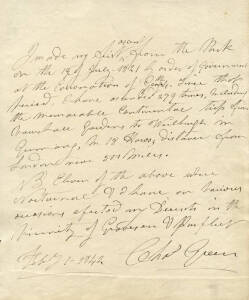 I made my first ascent from the Park
on the 19th July 1821 by order of Government
at the Coronation of Geo 4th, Since that
period I have ascended 279 times, Including
the Memorable Continental trip from
Vauxhall Gardens to Weilburgh in
Germany, in 18 Hours, distance from
London near 500 Miles.
NB Eleven of the above were
Nocturnal & I have on Various
occasions effected my Descents in the
Vicinity of
Feby 1 - 1842 Chas Green